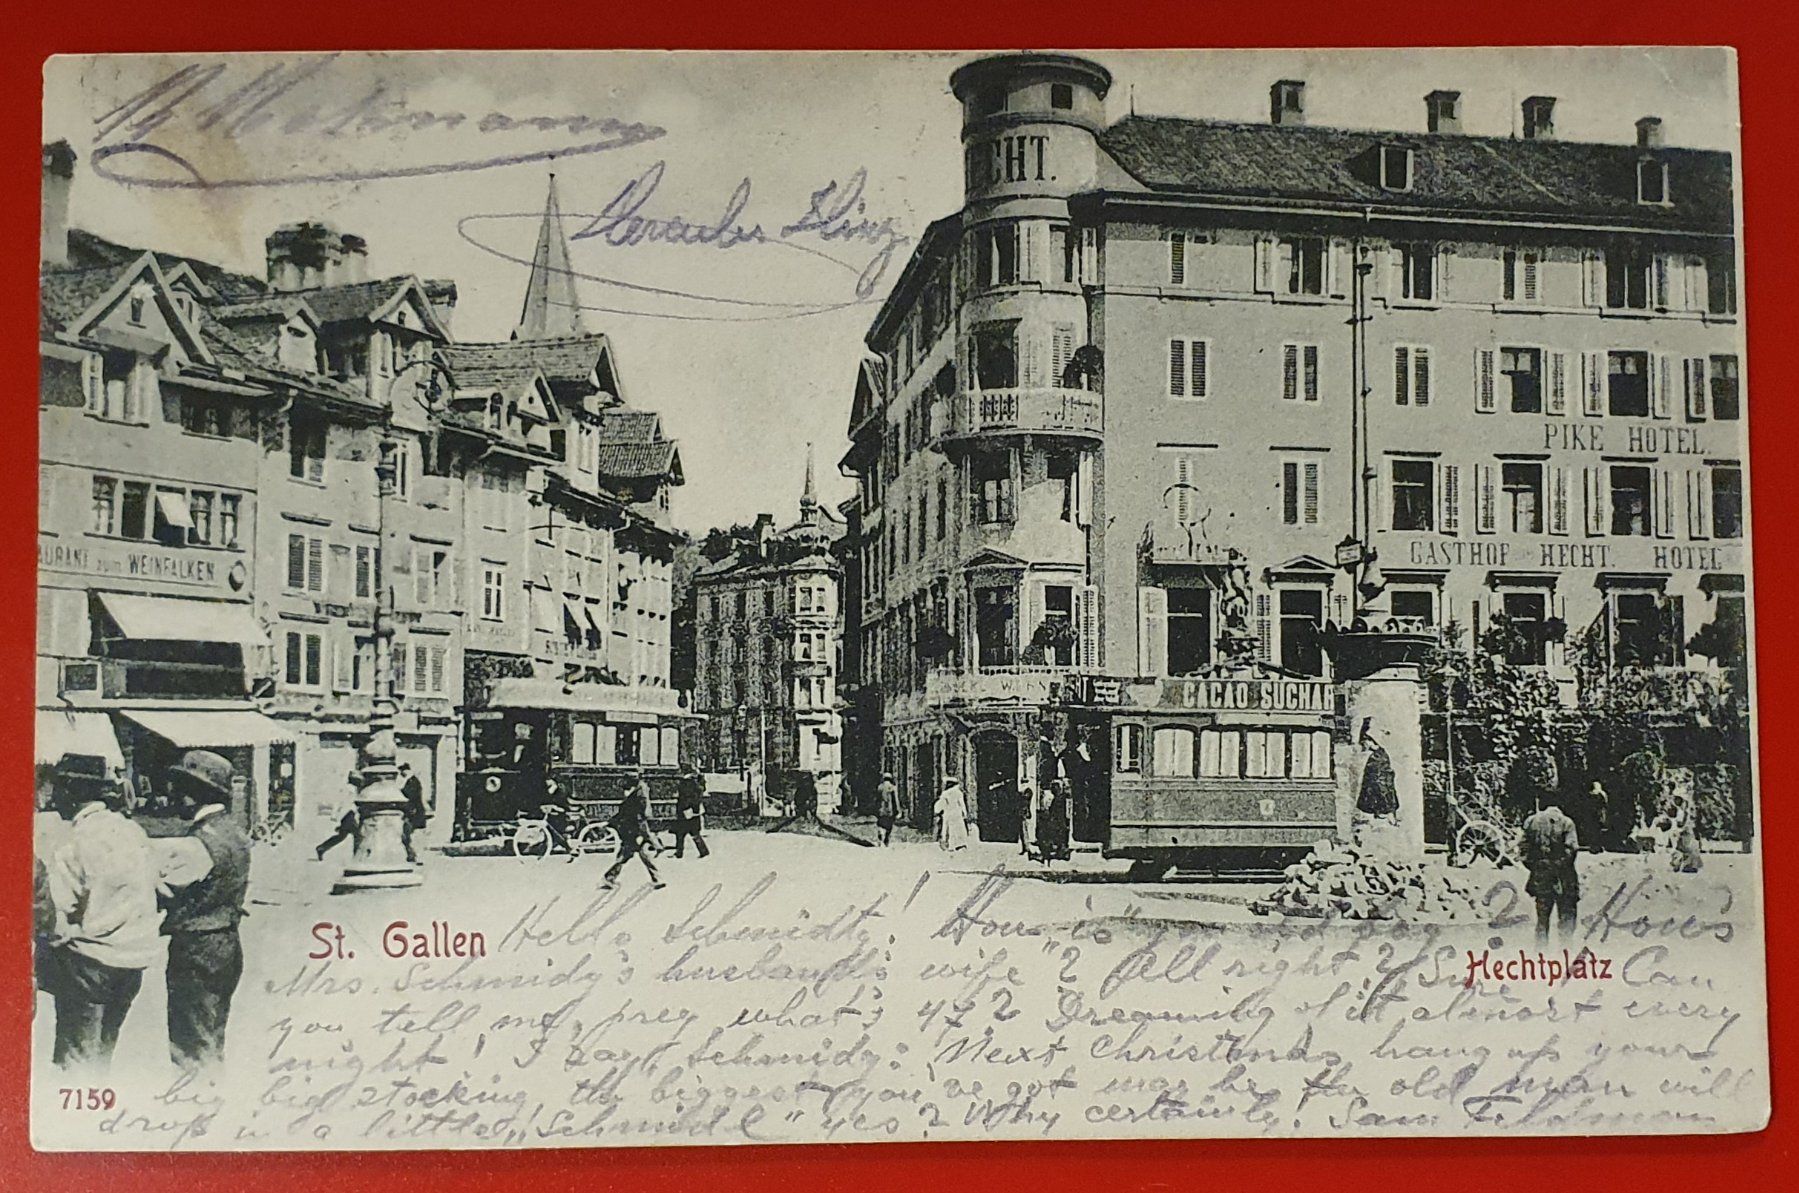 CHT.
PIKE HOTEL.
GASTHOF HECHT. HOTEL
URANT zum WEINFALKEN
CACAO SUCHAR
St. Gallen
Hechtplatz
7159
Hello Schmidty! How is "your old pog"? How's
Mrs. Schmidy's husband's wife"? All right? Sure Can
you tell me, prey, what's 47? Dreaming of it almost every
night! I say, Schmidy: Next Christmas hang up your
big big stocking the biggest you've got may be the old man will
drop in a little "Schmidl" yes? Why certainly! Sam Feldman